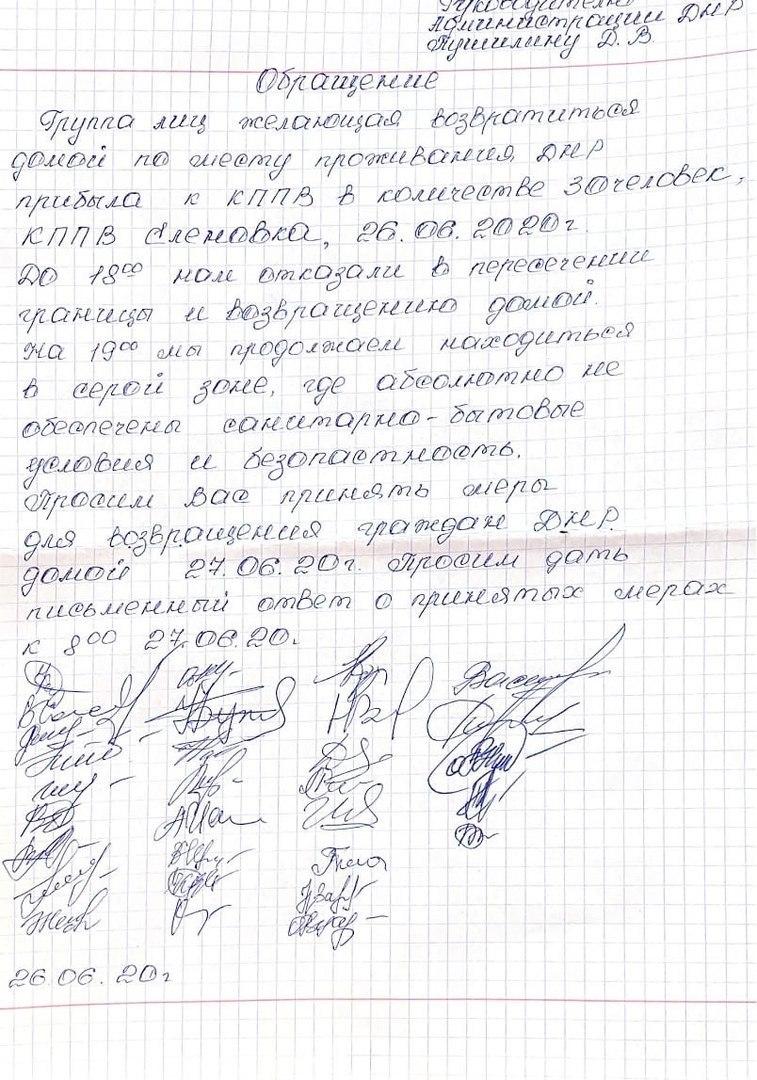 Руководителю
Администрации ДНР
Пушилину Д. В.
Обращение
Группа лиц желающая возвратиться
домой по месту проживания, ДНР
прибыла к КППВ в количестве 30 человек,
КППВ Еленовка, 26.06.2020г.
До 18⁰⁰ нам отказали в пересечении
границы и возвращению домой.
На 19⁰⁰ мы продолжаем находиться
в серой зоне, где абсолютно не
обеспечены санитарно-бытовые
условия и безопастность.
Просим Вас принять меры
для возвращения граждан ДНР
домой 27.06.20г. Просим дать
письменный ответ о принятых мерах
к 8⁰⁰ 27.06.20г.
26.06.20г